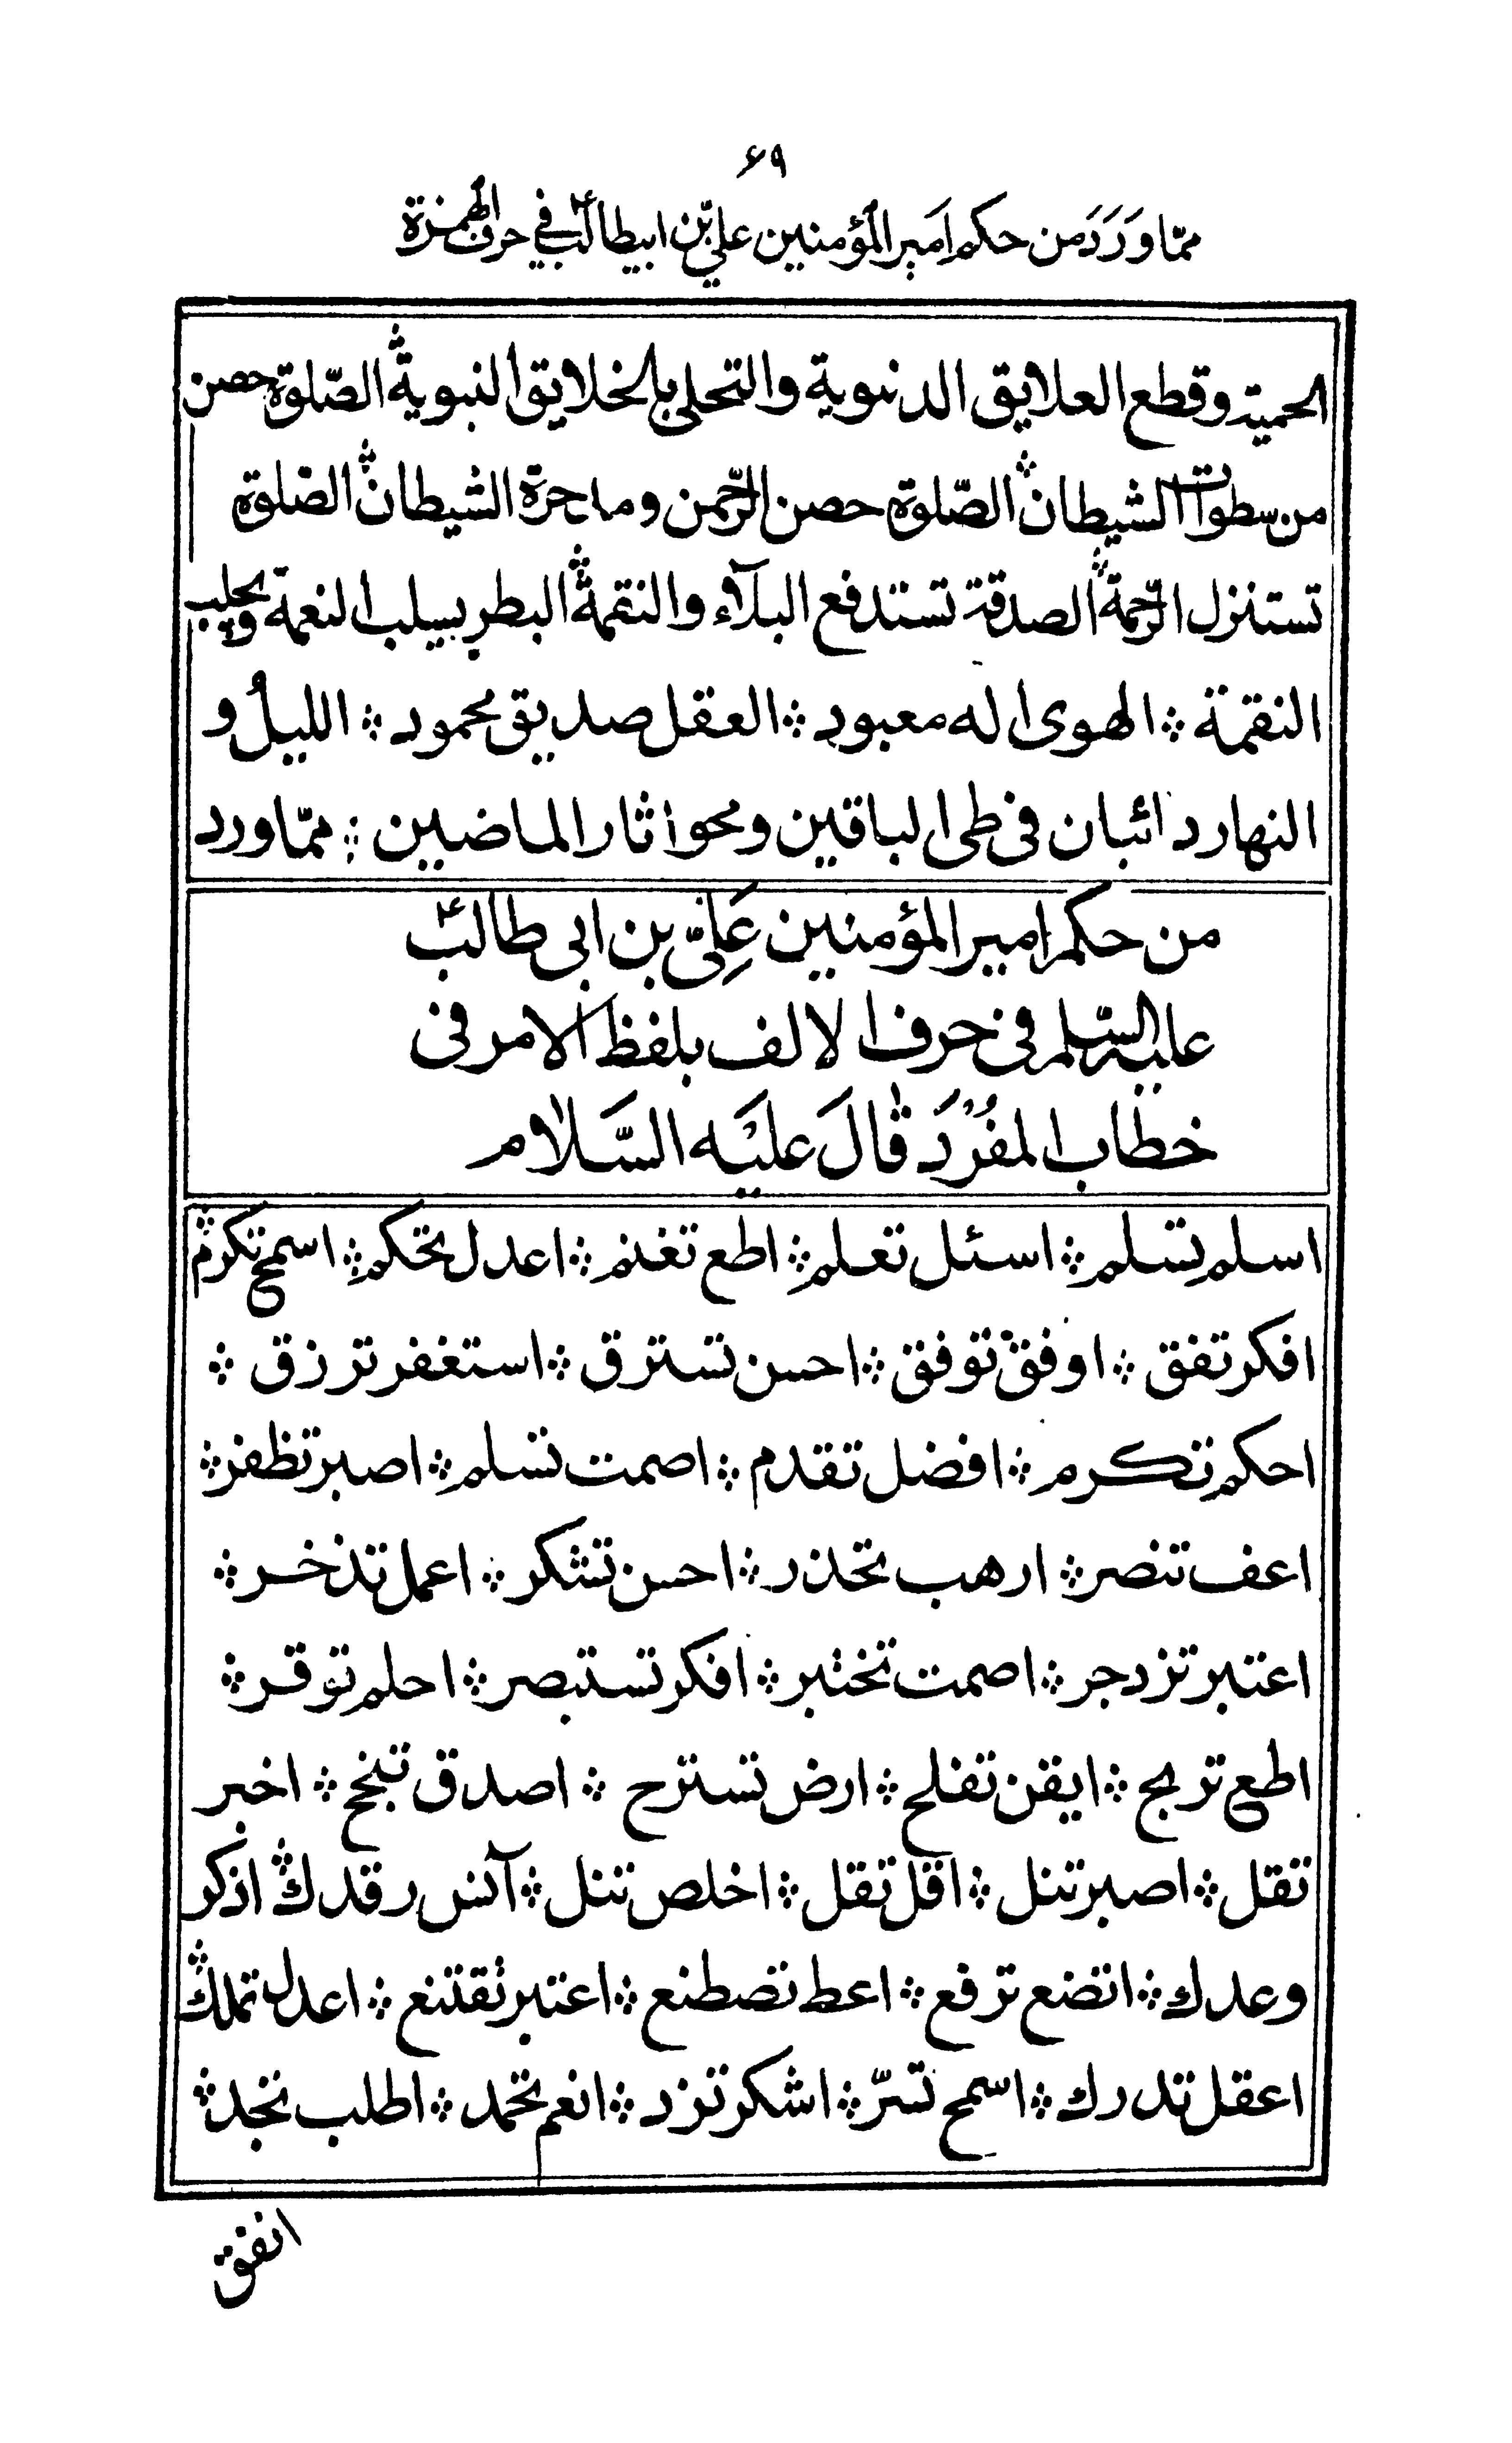 ۶۹
ممّا وَرَدَ من حكم اَمير المؤمنين علي بن ابيطالب ع في حرف الهمزة
الحمية وقطع العلايق الدنيوية والتحلي بالخلايق النبوية ⁘ الصّلوة حصن
من سطوات الشيطان ⁘ الصّلوة حصن الرّحمن ومدحرة الشيطان ⁘ الصّلوة
تستنزل الرّحمة ⁘ الصدقة تستدفع البلآء والنقمة ⁘ البطر يسلب النعمة ويجلب
النقمة ⁘ الهوى اله معبود ⁘ العقل صديق محمود ⁘ الليلُ و
النهار دائبان فى طى الباقين ومحو اثار الماضين ⁘ ممّا ورد
من حكم امير المؤمنين عَلِىّ بن ابى طالب ع
عليه السّلم فى حرف الالف بلفظ الامر فى
خطاب المفُرَد قالَ عليَه السَّلام
اسلم تسلم ⁘ اسئل تعلم ⁘ اطع تغنم ⁘ اعدل تحكم ⁘ اسمح تكرم ⁘
افكر تفق ⁘ اوفق توفق ⁘ احسن تسترق ⁘ استغفر ترزق ⁘
احكم تكرم ⁘ افضل تقدم ⁘ اصمت تسلم ⁘ اصبر تظفر ⁘
اعف تنصر ⁘ ارهب تحذر ⁘ احسن تشكر ⁘ اعمل تدخر ⁘
اعتبر تزدجر ⁘ اصمت تختبر ⁘ افكر تستبصر ⁘ احلم توقر ⁘
اطع تربح ⁘ ايقن تفلح ⁘ ارض تسترح ⁘ اصدق تنجح ⁘ اخبر
تقل ⁘ اصبر تنل ⁘ اقل تقل ⁘ اخلص تنل ⁘ آنس رفدك ⁘ اذكر
وعدك ⁘ اتضع ترفع ⁘ اعط تصطنع ⁘ اعتبر تقتنع ⁘ اعدل تملك ⁘
اعقل تدرك ⁘ اسمح تسرّ ⁘ اشكر تزد ⁘ انعم تحمد ⁘ اطلب تجد ⁘
انفق